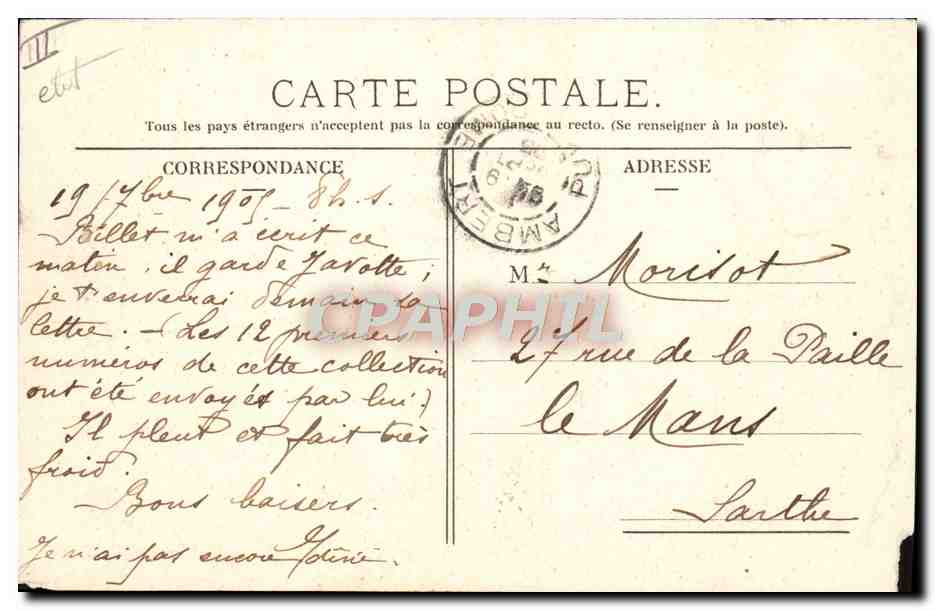 III
CARTE POSTALE.
Tous les pays étrangers n'acceptent pas la correspondance au recto. (Se renseigner à la poste).
CORRESPONDANCE
ADRESSE
19 7bre 1905 - 8h. s.
Billet m'a écrit ce
matin, il garde Javotte;
je t'enverrai demain sa
lettre. - (Les 12 premiers
numéros de cette collection
ont été envoyés par lui.)
Il pleut et fait très
froid.
Bons baisers.
Je n'ai pas encore
AMBERT
PUY
DOME
CPAPHIL
Mr Morisot
27 rue de la Paille
le Mans
Sarthe